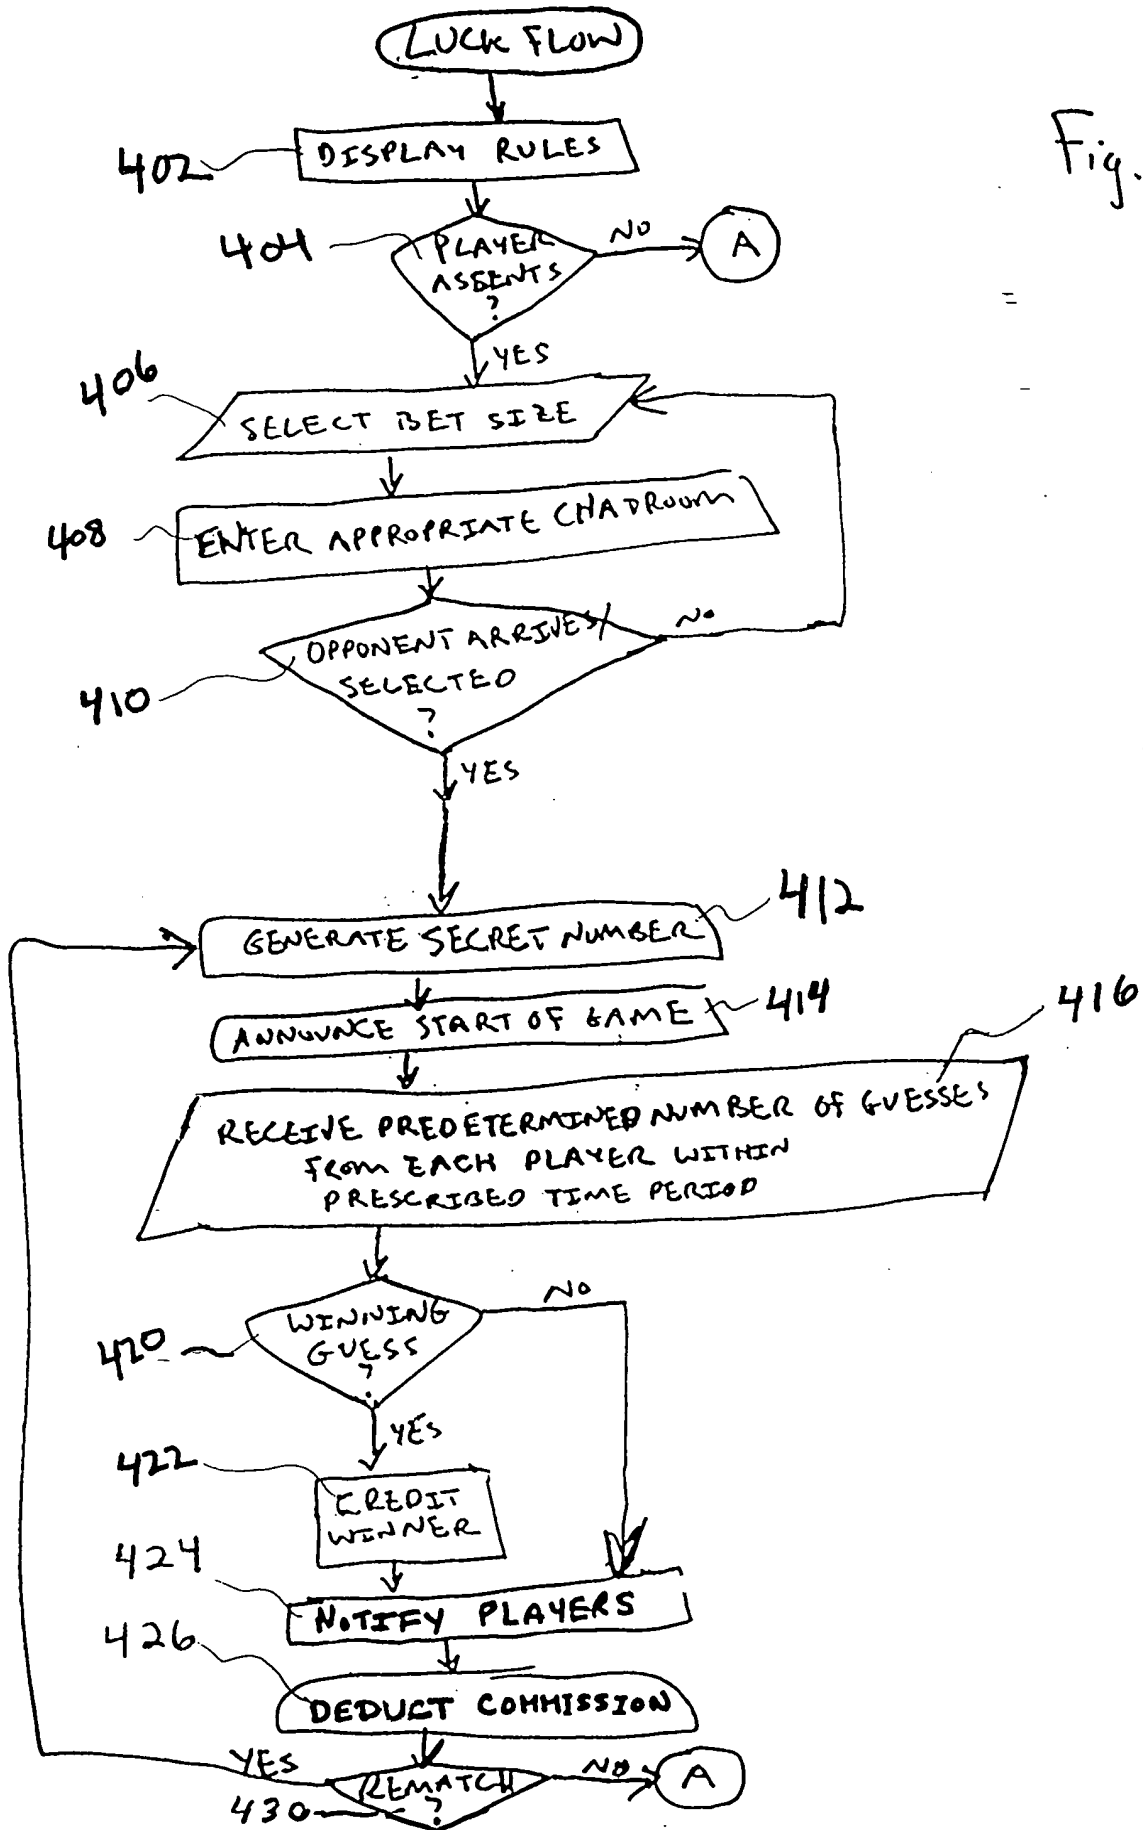 LUCK FLOW
Fig.
402
DISPLAY RULES
404
PLAYER
ASSENTS
?
NO
A
YES
406
SELECT BET SIZE
408
ENTER APPROPRIATE CHADROOM
OPPONENT ARRIVES/
SELECTED
?
NO
410
YES
412
GENERATE SECRET NUMBER
ANNOUNCE START OF GAME
414
416
RECEIVE PREDETERMINED NUMBER OF GUESSES
FROM EACH PLAYER WITHIN
PRESCRIBED TIME PERIOD
420
WINNING
GUESS
?
NO
YES
422
CREDIT
WINNER
424
NOTIFY PLAYERS
426
DEDUCT COMMISSION
YES
REMATCH
?
NO
A
430